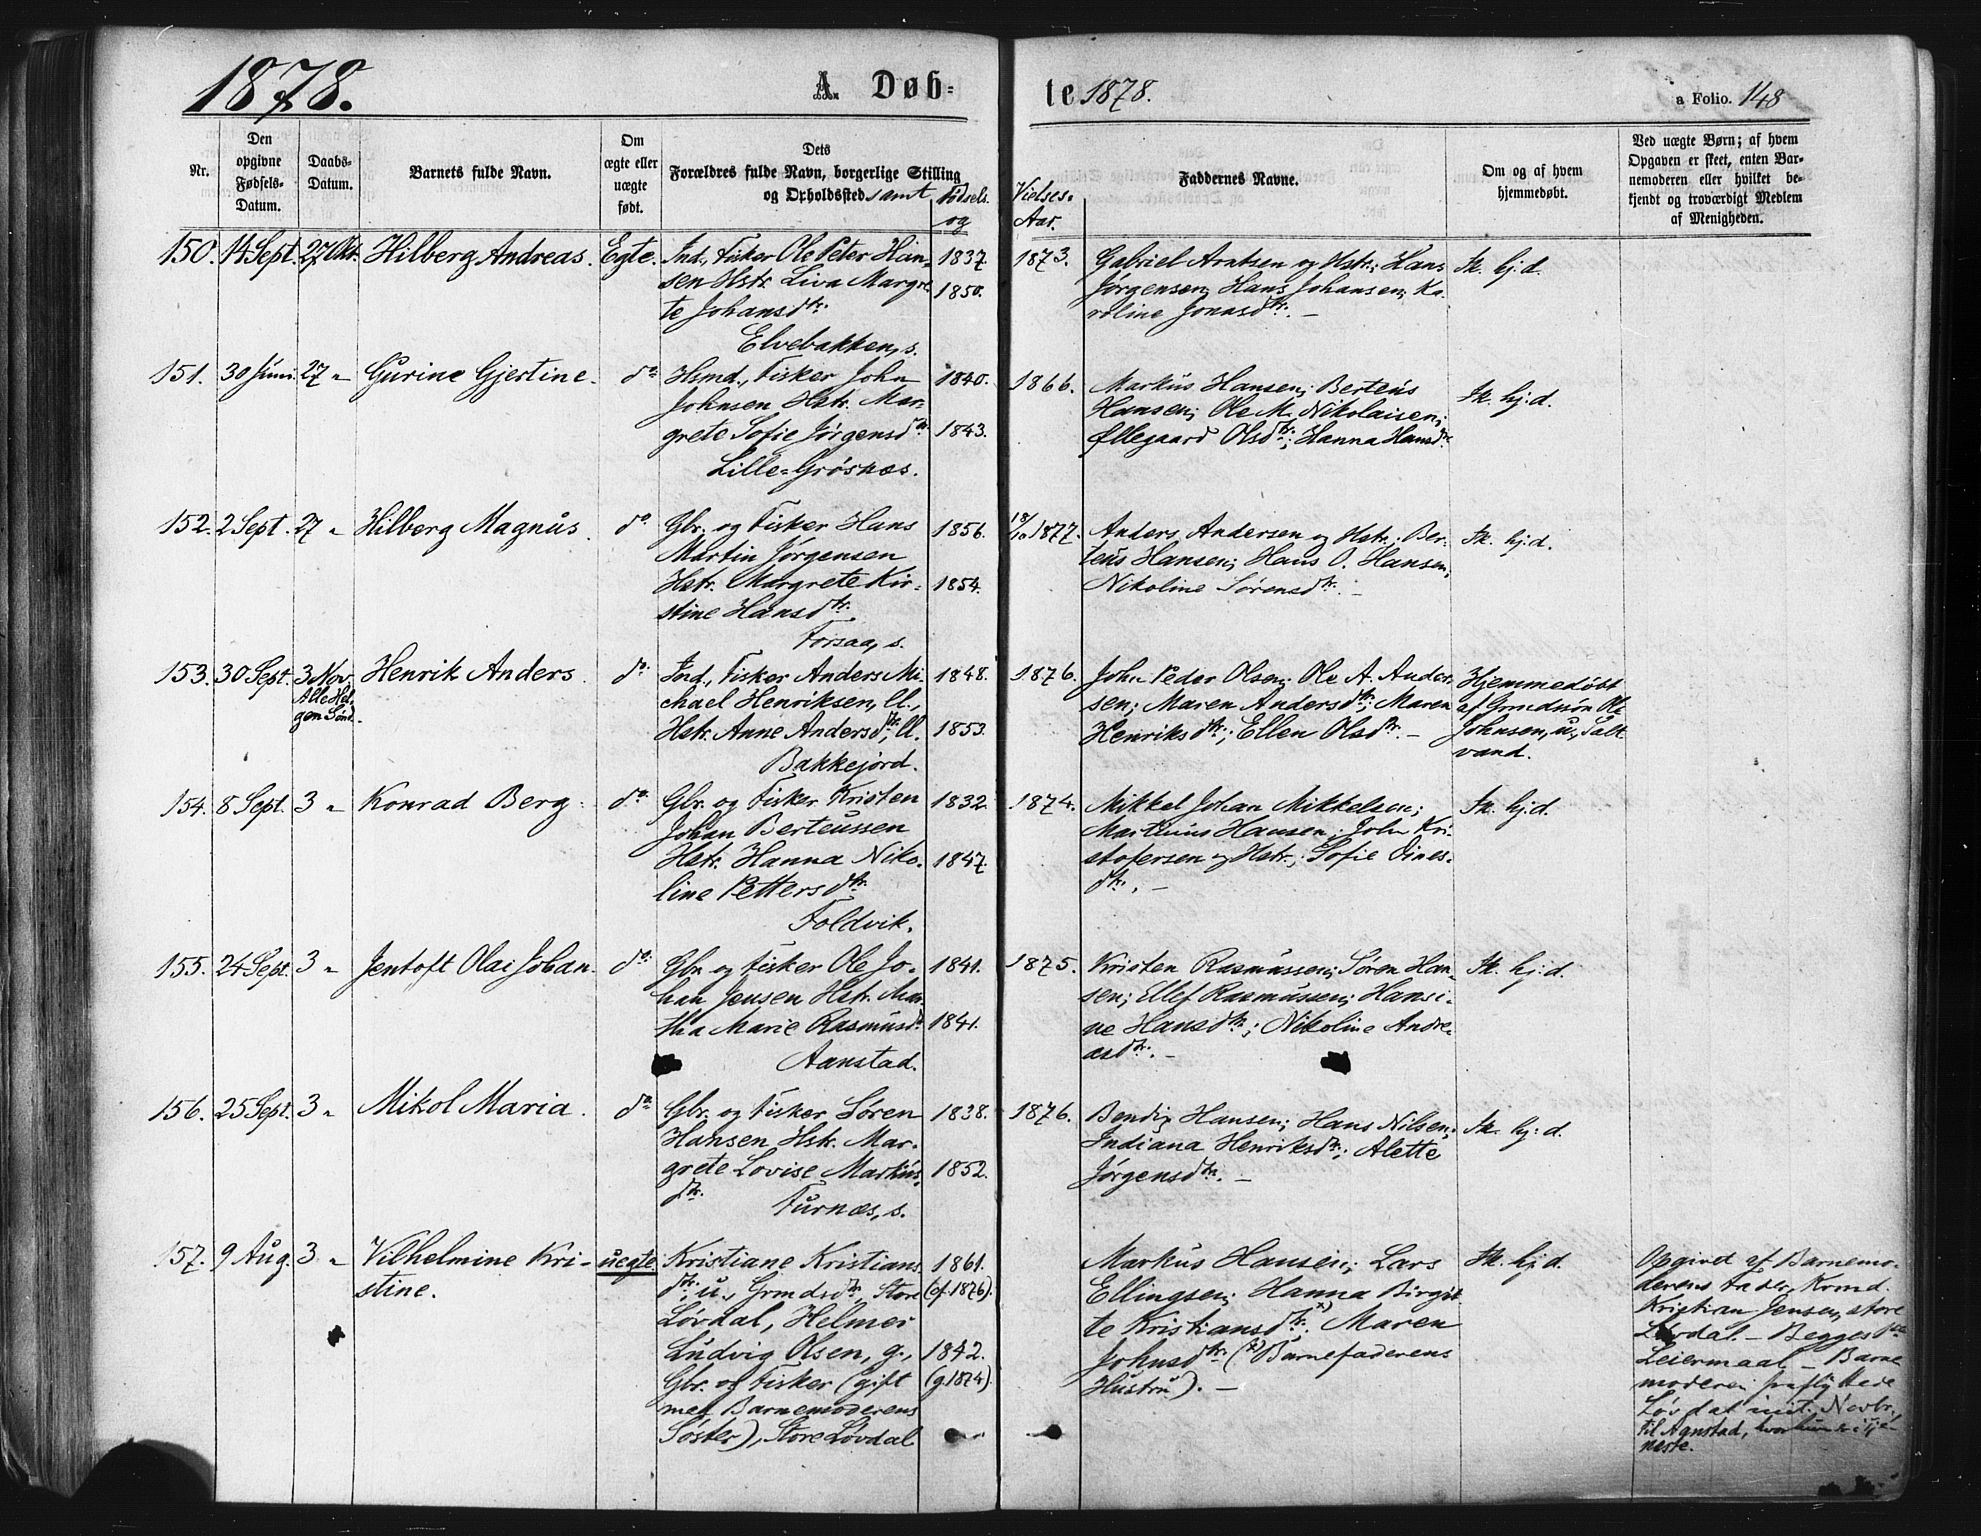 1878.
A. Døb-
te 1878.
a Folio. 148
Nr.
Den
opgivne
Fødsels-
Datum.
Daabs-
Datum.
Barnets fulde Navn.
Om
ægte eller
uægte
født.
Dets
Forældres fulde Navn, borgerlige Stilling
og Opholdssted samt
Fødsels
og
Vielses-
Aar.
Faddernes Navne.
Om og af hvem
hjemmedøbt.
Ved uægte Børn; af hvem
Opgaven er skeet, enten Bar-
nemoderen eller hvilket be-
kjendt og troværdigt Medlem
af Menigheden.
150. 14 Sept. 27 Okt. Hilberg Andreas. Egte.
Ind., Fisker Ole Peter Han-
sen Hstr. Liva Margre-
te Johansdtr.
Elvebakken, s.
1837.
1850.
1873.
Gabriel Arntsen og Hstr.; Hans
Jørgensen; Hans Johansen; Ka-
roline Jonasdtr. —
Sk. hj. d.
151. 30 Juni. 27 „ Gurine Gjertine. do
Hsmd., Fisker John
Johnsen Hstr. Mar-
grete Sofie Jørgensdtr.
Lille-Grøsnæs.
1840.
1843.
1866.
Markus Hansen; Berteus
Hansen; Ole M. Nikolaisen;
Ellegaard Olsdtr.; Hanna Hansdtr.
Sk. hj. d.
152. 2 Sept. 27 „ Hilberg Magnus. do.
Gbr. og Fisker Hans
Martin Jørgensen
Hstr. Margrete Kir-
stine Hansdtr.
Forsaa, s.
1856.
1854.
18/10 1877.
Anders Andersen og Hstr.; Ber-
teus Hansen; Hans O. Hansen;
Nikoline Sørensdtr. —
Sk. hj. d.
153. 30 Sept. 3 Nov. Henrik Anders. do.
Alle Hel-
gen Sønd.
Ind., Fisker Anders Mi-
chael Henriksen, ll.,
Hstr. Anne Andersdtr., ll.
Bakkejord.
1848.
1853.
1876.
John Peder Olsen; Ole A. Ander-
sen; Maren Andersdtr.; Maren
Henriksdtr.; Ellen Olsdtr. —
Hjemmedøbt
af Grmdsøn Ole
Johnsen, u., Salt
vand.
154. 8 Sept. 3 „ Konrad Berg. do.
Gbr. og Fisker Kristen
Johan Berteussen
Hstr. Hanna Niko-
line Pettersdtr.
Foldvik.
1832.
1847.
1874.
Mikkel Johan Mikkelsen;
Martinus Hansen; John Kri-
stofersen og Hstr.; Sofie Dines-
dtr. —
Sk. hj. d.
155. 24 Sept. 3 „ Jentoft Olai Johan. do.
Gbr. og Fisker Ole Jo-
han Jensen Hstr. Mar-
tha Marie Rasmusdtr
Aanstad.
1841.
1841.
1875.
Kristen Rasmussen; Søren Han-
sen; Ellef Rasmussen; Hansi-
ne Hansdtr.; Nikoline Andre-
asdtr. —
Sk. hj. d.
156. 25 Sept. 3 „ Mikol Maria. do.
Gbr. og Fisker Søren
Hansen Hstr. Mar-
grete Lovise Markus-
dtr.
Furnæs, s.
1838.
1852.
1876.
Bendig Hansen; Hans Nilsen;
Indiana Henriksdtr.; Alette
Jørgensdtr. —
Sk. hj. d.
157. 9 Aug. 3 „ Vilhelmine Kri-
stine.
uegte
Kristiane Kristians
dtr., u., Grmdsdtr., Store
Løvdal, Helmer
Ludvig Olsen, g.,
Gbr. og Fisker (gift
med Barnemoderens
Søster), Store Løvdal
1861.
(cf. 1876).
1842.
(g. 1874).
Markus Hansen; Lars
Ellingsen; Hanna Birgit-
te Kristiansdtr. x) Maren
Johnsdtr. (x) Barnefaderens
Hustru). —
Sk. hj. d.
Opgivet af Barnemo-
derens Fader, Grmd.
Kristian Jensen, store
Løvdal — Begges 1ste
Leiermaal — Barne
moderen fraflyttede
Løvdal midt. Novbr.
til Aanstad, hvor hun er i Tje-
neste.